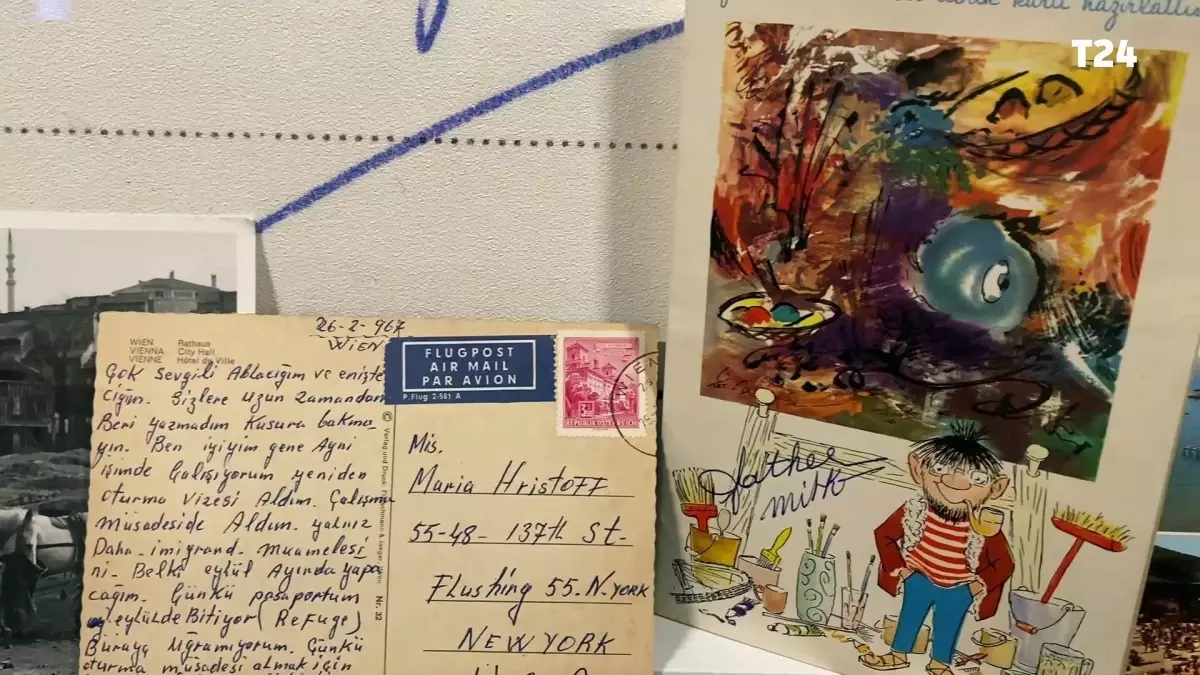 T24
26-2-967
WIEN
WIEN Rathaus
VIENNA City Hall
VIENNE Hôtel de Ville
Çok sevgili Ablacığım ve enişte
ciğim. Sizlere uzun zamandan
Beri yazmadım Kusura bakma
yın. Ben iyiyim gene Ayni
işimde Çalışıyorum yeniden
oturma vizesi Aldım. Çalışma
müsadeside Aldım. yalnız
Daha imigrand muamelesi
ni. Belki eylül Ayında yapa
cağım. Çünkü pasaportum
eylülde Bitiyor (ReFuge)
Buraya Uğramıyorum. Çünkü
oturma müsadesi almak için
FLUGPOST
AIR MAIL
PAR AVION
P.Flug 2-581 A
REPUBLIK ÖSTERREICH
WIEN
Mis.
Maria Hristoff
55-48- 137th St-
Flushing 55. N.YORK
NEW YORK
© Verlag und Druck:
Nr. 32
hazırlattı